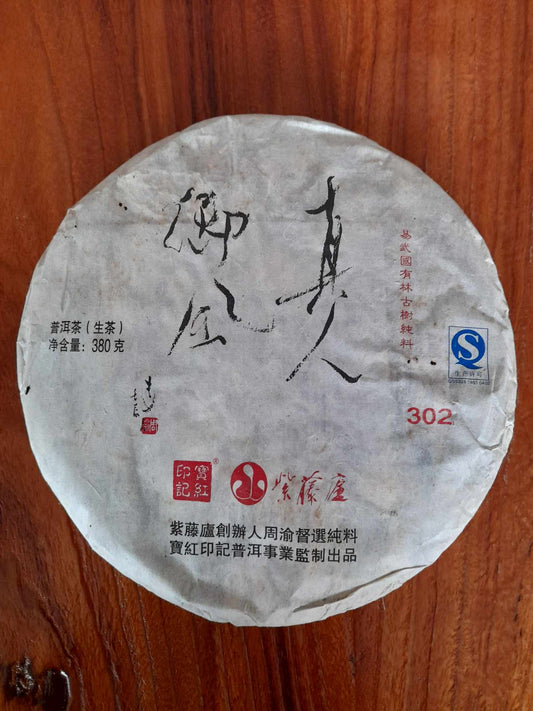 真人
御風
易武國有林古樹純料
普洱茶（生茶）
净含量：380克
生产许可
302
寶紅印記®
紫藤廬
紫藤廬創辦人周渝督選純料
寶紅印記普洱事業監制出品